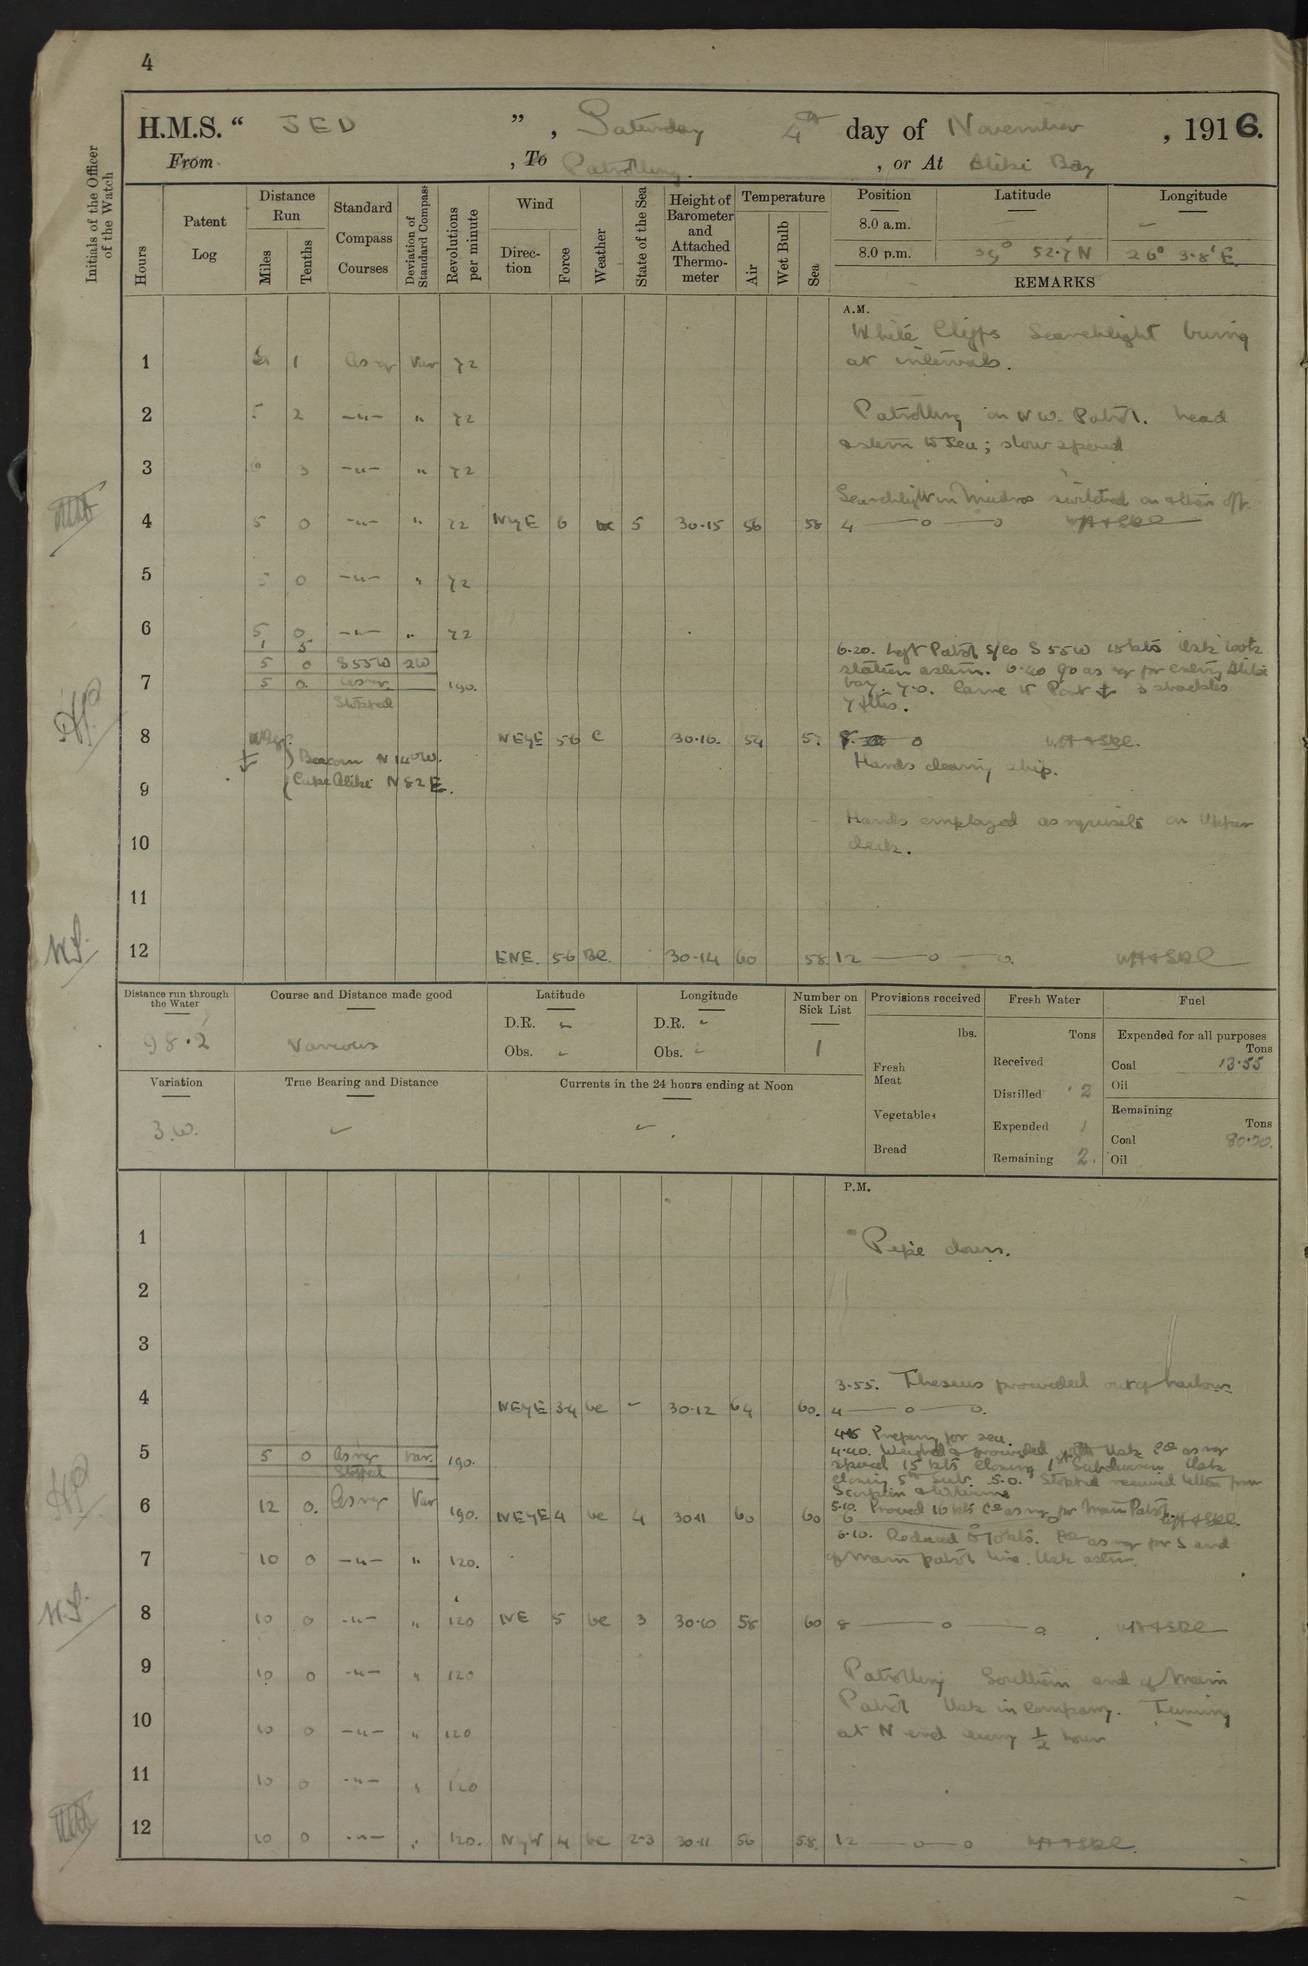 4
H.M.S. “ JED ” , Saturday 4th day of November , 1916.
From , To Patrolling. , or At Aliki Bay
Initials of the Officer of the Watch
Hours
Patent Log
Distance Run
Miles
Tenths
Standard Compass Courses
Deviation of Standard Compass
Revolutions per minute
Wind
Direction
Force
Weather
State of the Sea
Height of Barometer and Attached Thermometer
Temperature
Air
Wet Bulb
Sea
Position Latitude Longitude
8.0 a.m. —
8.0 p.m. 39° 52.7' N 26° 3.8' E
REMARKS
A.M.
White Cliffs Searchlight burng
1 1 As rqr Var 72 at intervals.
2 5 2 —"— " 72 Patrolling on NW. Patrol. head
astern to Sea; slow speed
3 3 —"— " 72
Searchlight in Mudros switched on & then off.
4 5 0 —"— " 72 NyE 6 bc 5 30.15 56 58 4 —— o —— o
5 0 —"— " 72
6 5 0 —"— " 72
1 5 6.20. Left Patrol s/co S 55 W 15 kts Usk took
5 0 S55W 2W station astern. 6.40 Co as rqr for entrg Aliki
7 5 0 As rqr 190. bay. 7.0. Came to Port ⚓ 3 shackles
Stopped 7 fths.
8 NEyE 56 C 30.16. 54 8. o
Beacon N 14° W.
Cape Aliki N 82 E.
Hands cleaning ship.
9
Hands employed as requisite on Upper
10 deck.
11
12 ENE. 56 BC. 30.14 60 58 12 —— o —— o.
Distance run through the Water
98.2
Course and Distance made good
Various
Latitude
D.R.
Obs.
Longitude
D.R.
Obs.
Number on Sick List
1
Provisions received
lbs.
Fresh Meat
Vegetables
Bread
Fresh Water
Tons
Received
Distilled 2
Expended 1
Remaining 2.
Fuel
Expended for all purposes
Tons
Coal 13.55
Oil
Remaining
Tons
Coal 80.20.
Oil
Variation
3.W.
True Bearing and Distance
Currents in the 24 hours ending at Noon
P.M.
1 Pipe down.
2
3
3.55. Theseus proceeded out of harbour
4 NEyE 3.4 bc - 30.12 64 60. 4 —— o —— o.
Preparg for sea.
5 5 0 As rqr var. 190. 4.40. Weighed & proceeded with Usk Co as rqr
Stopped speed 15 kts closing 1st Subdivision Usk
closing 5th Sub. 5.0. Stopped received letters from
Scorpion
6 12 0. As rqr Var 190. NEyE 4 bc 4 30.11 60 60 5.10. Proceed 16 kts Co as rqr for Main Patrol.
6.10. Reduced to 10 kts. Co as rqr for S end
7 10 0 —"— " 120. of Main patrol line. Usk astern.
8 10 0 —"— " 120 NE 5 bc 3 30.10 58 60 8 —— o —— o
9 10 0 —"— " 120 Patrolling Southern end of Main
Patrol Usk in Company. Turning
10 10 0 —"— " 120 at N end every ½ hour
11 10 0 —"— " 120
12 10 0 —"— " 120. NyW 4 bc 2-3 30.11 56 58. 12 —— o —— o